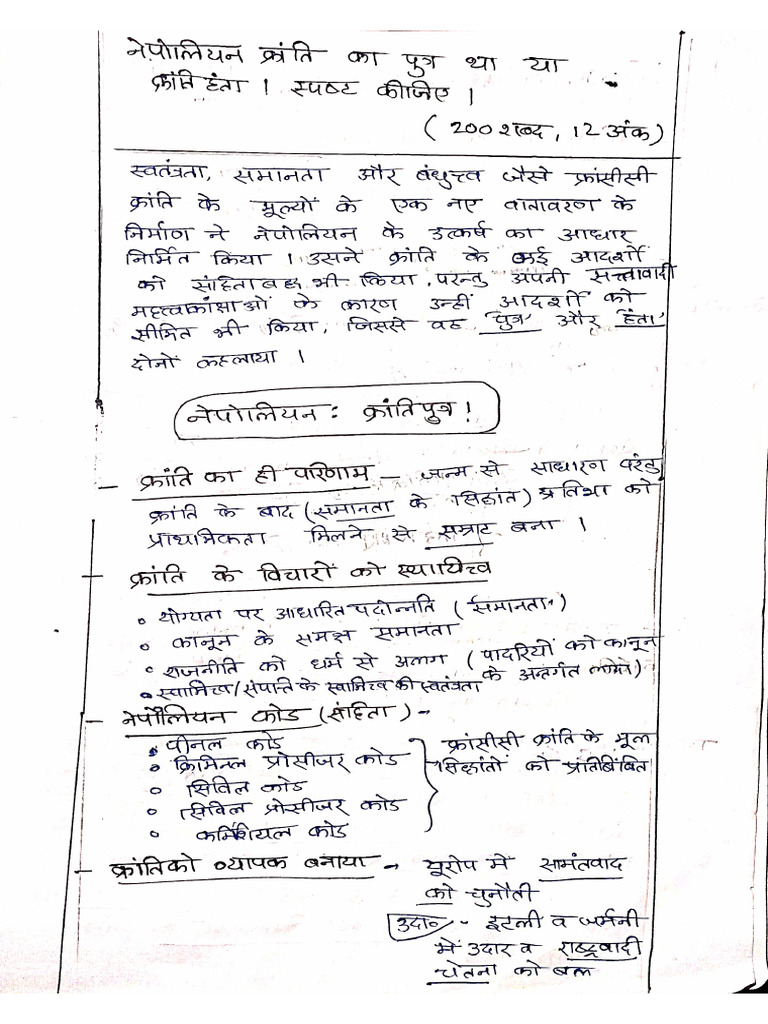 नेपोलियन क्रांति का पुत्र था या
क्रांतिहंता । स्पष्ट कीजिए ।
( 200 शब्द, 12 अंक)
स्वतंत्रता, समानता और बंधुत्त्व जैसे फ्रांसीसी
क्रांति के मूल्यों के एक नए वातावरण के
निर्माण ने नेपोलियन के उत्कर्ष का आधार
निर्मित किया । उसने क्रांति के कई आदर्शों
को संहिताबद्ध भी किया, परन्तु अपनी सत्तावादी
महत्वाकांक्षाओं के कारण उन्हीं आदर्शों को
सीमित भी किया, जिससे वह 'पुत्र' और 'हंता'
दोनों कहलाया ।
नेपोलियन : क्रांतिपुत्र !
- क्रांति का ही परिणाम - जन्म से साधारण परंतु
क्रांति के बाद (समानता के सिद्धांत) प्रतिभा को
प्राथमिकता मिलने से सम्राट बना ।
- क्रांति के विचारों को स्थायित्त्व
• योग्यता पर आधारित पदोन्नति ( समानता )
• कानून के समक्ष समानता
• राजनीति को धर्म से अलग ( पादरियों को कानून के अन्तर्गत लाये)
• स्वामित्त्व/संपत्ति के स्वामित्त्व की स्वतंत्रता
- नेपोलियन कोड (संहिता) -
• पीनल कोड
• क्रिमिनल प्रोसीजर कोड
• सिविल कोड
• सिविल प्रोसीजर कोड
• कमर्शियल कोड
फ्रांसीसी क्रांति के मूल
सिद्धांतों को प्रतिबिंबित
- क्रांति को व्यापक बनाया - यूरोप में सामंतवाद
को चुनौती
उदा० - इटली व जर्मनी
में उदार व राष्ट्रवादी
चेतना को बल